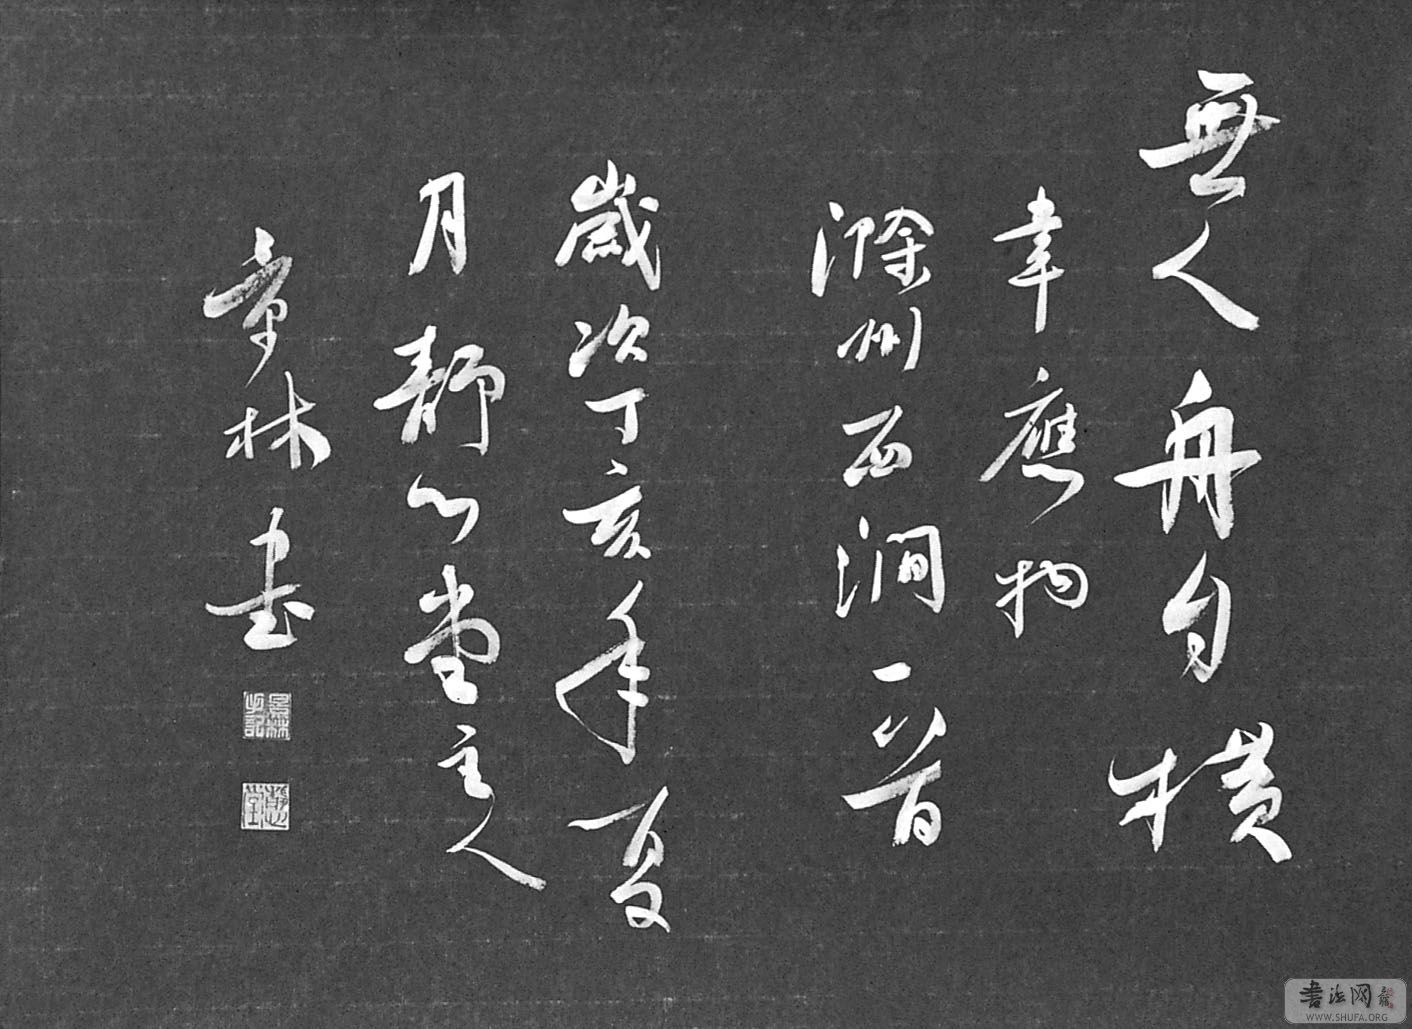 無人舟自橫
韋應物
滁州西澗一首
歲次丁亥年夏
月靜心堂主人
林書
書法网
WWW.SHUFA.ORG